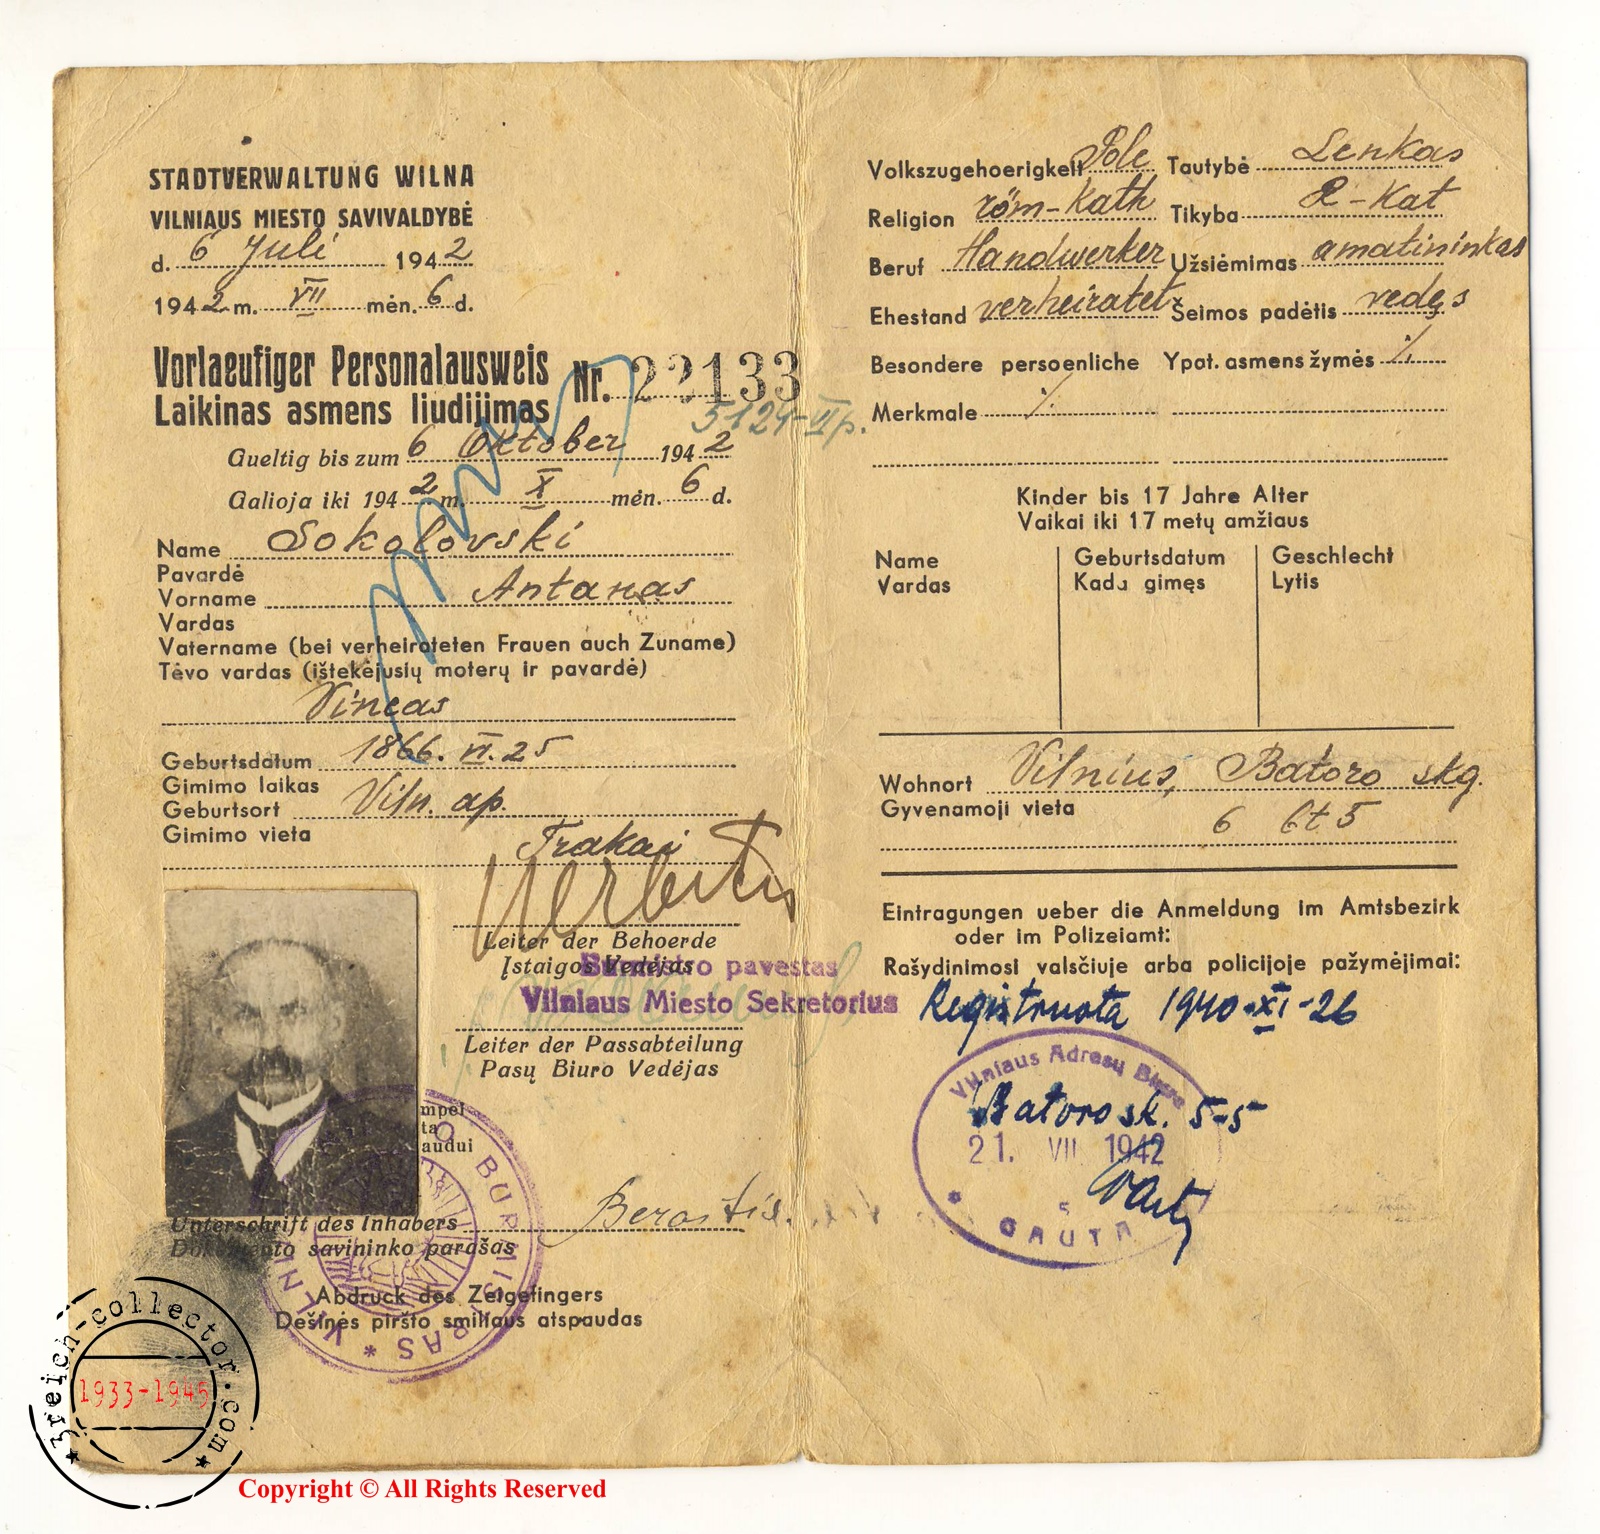 STADTVERWALTUNG WILNA
VILNIAUS MIESTO SAVIVALDYBĖ
d. 6 Juli 1942
1942 m. VII mėn. 6 d.
Vorlaeufiger Personalausweis Nr. 22133
Laikinas asmens liudijimas
5124-II p.
Gueltig bis zum 6 Oktober 1942
Galioja iki 1942 m. X mėn. 6 d.
Name Sokolovski
Pavardė
Vorname Antanas
Vardas
Vatername (bei verheirateten Frauen auch Zuname)
Tėvo vardas (ištekėjusių moterų ir pavardė)
Vincas
Geburtsdatum 1866. VI. 25
Gimimo laikas
Geburtsort Viln. ap.
Gimimo vieta
Trakai
Leiter der Behoerde
Įstaigos Vedėjas
Burmistro pavestas
Vilniaus Miesto Sekretorius
Leiter der Passabteilung
Pasų Biuro Vedėjas
mpel
ta
audui
Unterschrift des Inhabers
Dokumento savininko parašas
Abdruck des Zeigefingers
Dešinės piršto smiliaus atspaudas
VILNIAUS BURMISTRAS *
Volkszugehoerigkeit Pole Tautybė Lenkas
Religion röm-kath Tikyba R-Kat
Beruf Handwerker Užsiėmimas amatininkas
Ehestand verheiratet Šeimos padėtis vedęs
Besondere persoenliche Ypat. asmens žymės ./.
Merkmale ./.
Kinder bis 17 Jahre Alter
Vaikai iki 17 metų amžiaus
Name Geburtsdatum Geschlecht
Vardas Kada gimęs Lytis
Wohnort Vilnius, Batoro skg.
Gyvenamoji vieta
6 bt 5
Eintragungen ueber die Anmeldung im Amtsbezirk
oder im Polizeiamt:
Rašydinimosi valsčiuje arba policijoje pažymėjimai:
Registruota 1940-XI-26
Vilniaus Adresų Biuro
Batoro sk. 5-5
21. VII 1942
5
GAUTA
3reich-collector.com
1933-1945
Copyright © All Rights Reserved